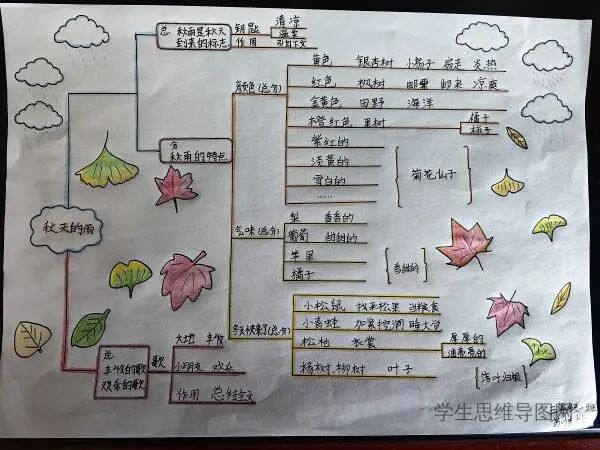 秋天的雨
总 秋雨是秋天
到来的标志
钥匙 清凉
温柔
作用 引出下文
分
秋雨的特点
颜色(总分)
黄色 银杏树 小扇子 扇走 炎热
红色 枫树 邮票 邮来 凉爽
金黄色 田野 海洋
橙红色 果树
橘子
柿子
紫红的
淡黄的
雪白的
……
菊花仙子
气味(总分)
梨 香香的
葡萄 甜甜的
苹果
橘子
香甜的
冬天快来了(总分)
小松鼠 找来松果 当粮食
小青蛙 加紧挖洞 睡大觉
松柏 衣裳
厚厚的
油亮亮的
杨树、柳树 叶子
落叶归根
总
丰收的歌
欢乐的歌
歌
大地 丰收
小朋友 欢乐
作用 总结全文
学生思维导图